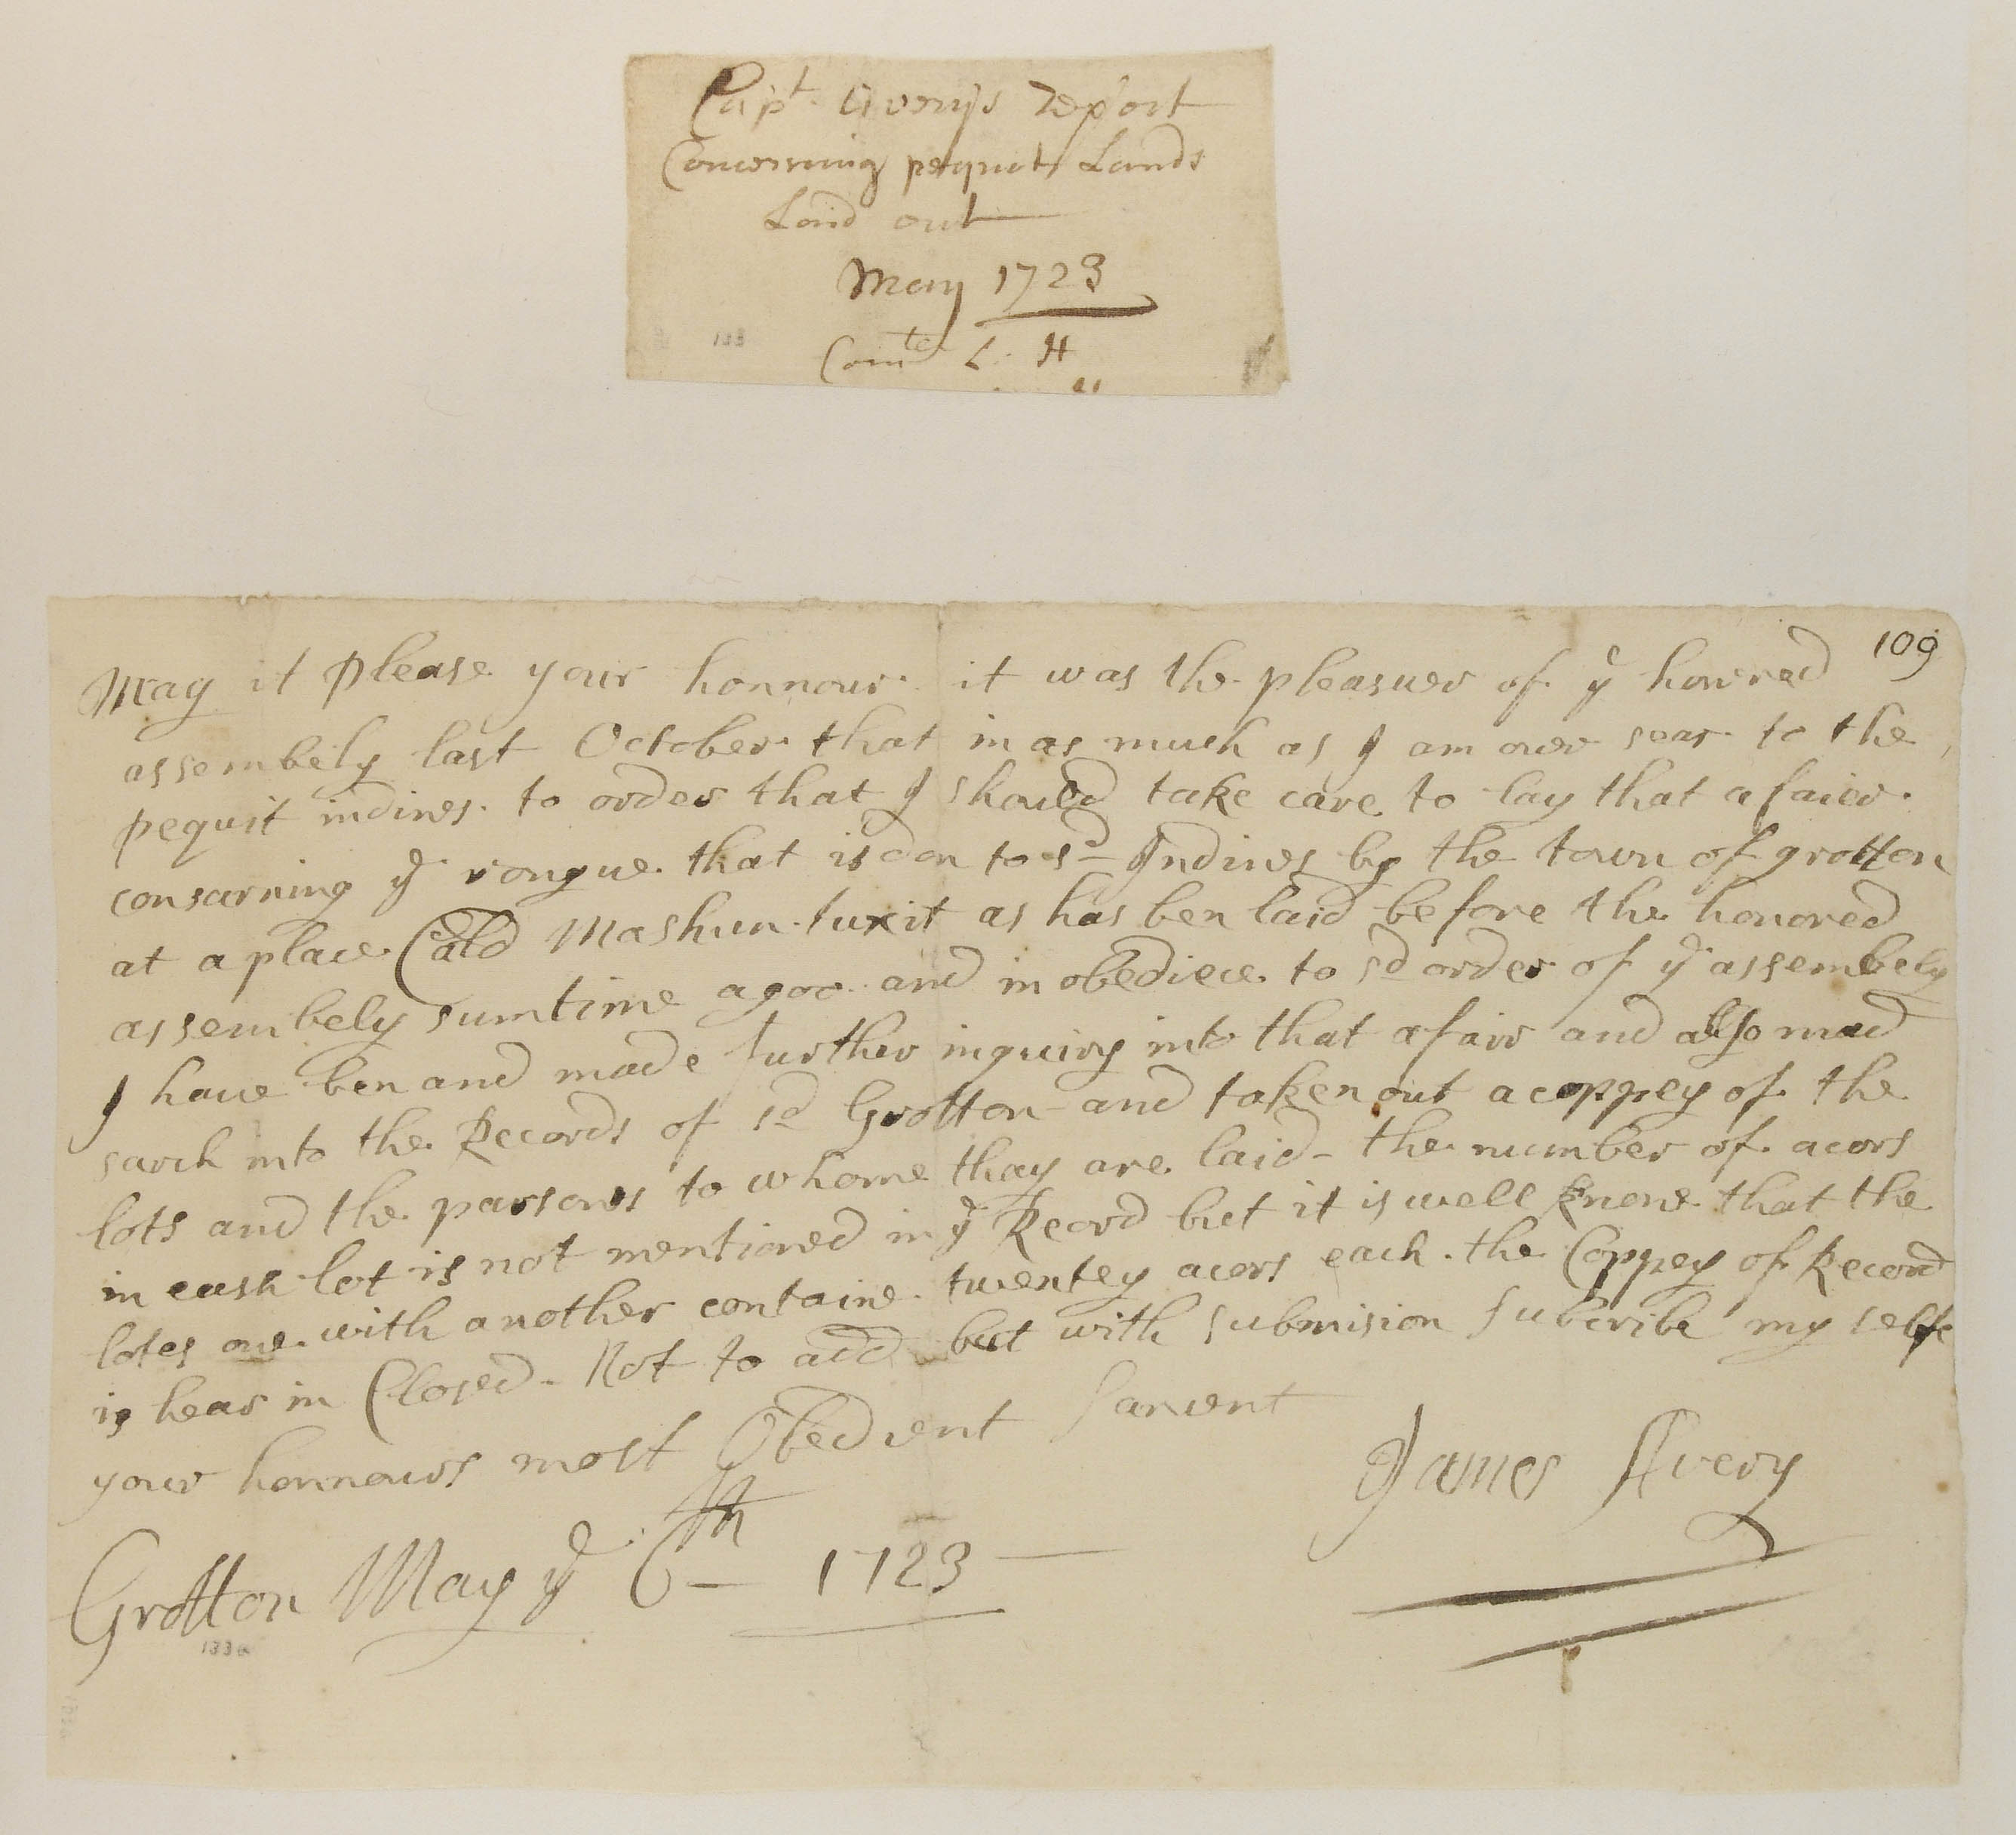 Capt. Averys report
Concerning pequots Lands
Laid out
May 1723
133
Comte L: H
May it please your honnour it was the pleasuer of ye honered
109
assembely last October that in as much as I am over sear to the
pequit indines to order that I should take care to lay that afaier
consarning ye rongue that is don to sd Indines by the town of grotton
at a place Cald Mashun-tuxit as has ben laid before the honored
assembely sumtime agoo and in obediece to sd order of ye assembely
I have ben and made further inquiry into that afair and allso mad
sarch into the Records of sd Grotton and taken out a coppey of the
lots and the parsons to whome thay are laid - the number of acors
in eash lot is not mentioned in ye Record but it is well knone that the
lotes one with another containe twentey acors each. the Coppey of Record
is hear in Closed - Not to add but with submision subcribe my selfe
your honnours most Obedient sarvent
James Avery
Grotton May ye 6th - 1723
133a